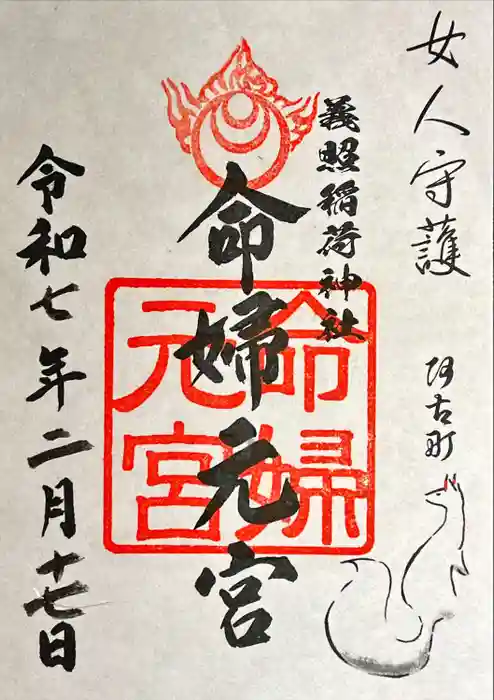 女人守護
阿古町
義照稲荷神社
命婦元宮
命婦元宮
令和七年二月十七日